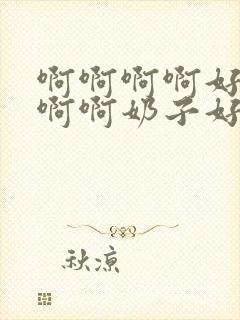 啊啊啊啊好
啊啊奶子好
秋凉